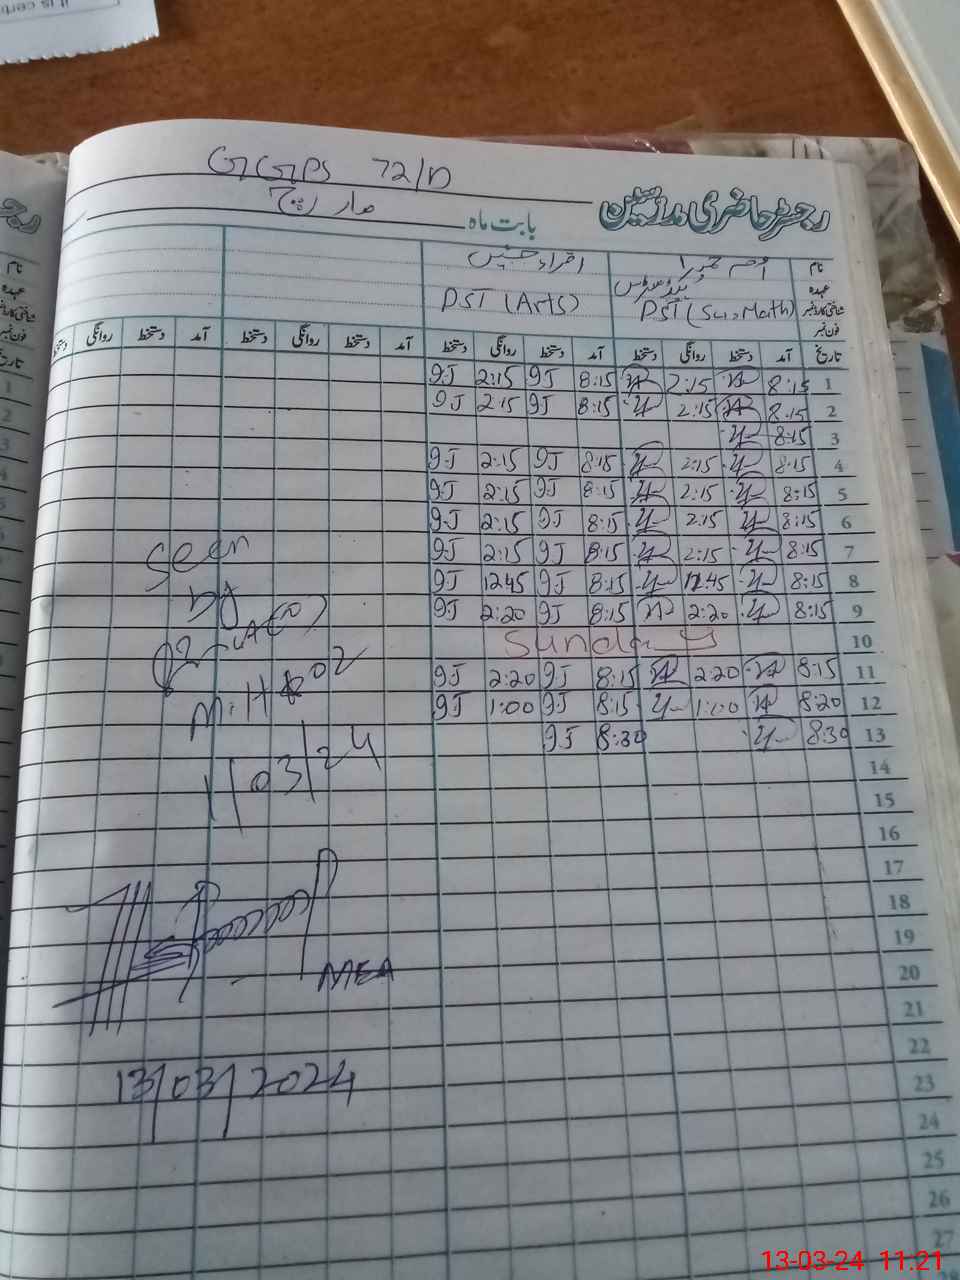 GGPS 72/D
رجسٹر حاضری مدرسین
بابت ماہ مارچ
نام
عہدہ
شناختی کارڈ نمبر
فون نمبر
اقراء
PST (Sci, Math) PST (Arts)
تاریخ آمد دستخط روانگی دستخط آمد دستخط روانگی دستخط آمد دستخط روانگی دستخط آمد دستخط روانگی دستخط
1 8:15 2:15 8:15 9J 2:15 9J
2 8:15 2:15 8:15 9J 2:15 9J
3 8:15
4 8:15 2:15 8:15 9J 2:15 9J
5 8:15 2:15 8:15 9J 2:15 9J
6 8:15 2:15 8:15 9J 2:15 9J
7 8:15 2:15 8:15 9J 2:15 9J
8 8:15 12.45 8:15 9J 1245 9J
9 8:15 2:20 8:15 9J 2:20 9J
10 Sunday
11 8:15 2:20 8:15 9J 2:20 9J
12 8:20 1:00 8:15 9J 1:00 9J
13 8:30 8:30 9J
14
15
16
17
18
19
20
21
22
23
24
25
26
27
Seen
by
1/03/24
MEA
13/03/2024
13-03-24 11.21